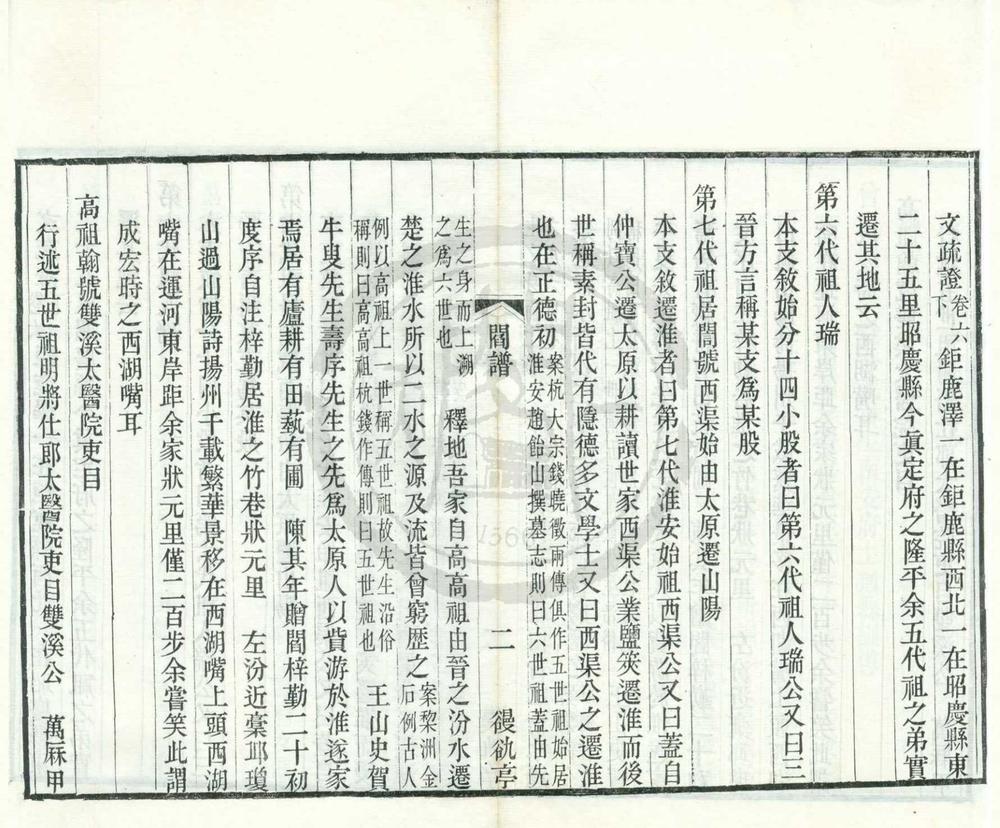 文疏證卷六下鉅鹿澤一在鉅鹿縣西北一在昭慶縣東
二十五里昭慶縣今眞定府之隆平余五代祖之弟實
遷其地云
第六代祖人瑞
本支敘始分十四小股者曰第六代祖人瑞公又曰三
晉方言稱某支爲某股
第七代祖居誾號西渠始由太原遷山陽
本支敘遷淮者曰第七代淮安始祖西渠公又曰蓋自
仲寶公遷太原以耕讀世家西渠公業鹽筴遷淮而後
世稱素封皆代有隱德多文學士又曰西渠公之遷淮
也在正德初案杭大宗錢曉徵兩傳俱作五世祖始居
淮安趙飴山撰墓志則曰六世祖蓋由先
閻譜
二
謾㰸亭
生之身而上溯
之爲六世也
釋地吾家自高高祖由晉之汾水遷
楚之淮水所以二水之源及流皆曾窮歴之案黎洲金
石例古人
例以高祖上一世稱五世祖故先生沿俗
稱則曰高高祖杭錢作傳則曰五世祖也
王山史賀
牛叟先生壽序先生之先爲太原人以貲游於淮遂家
焉居有廬耕有田蓺有圃
陳其年贈閻梓勤二十初
度序自注梓勤居淮之竹巷狀元里
左汾近稾邱瓊
山過山陽詩揚州千載繁華景移在西湖嘴上頭西湖
嘴在運河東岸距余家狀元里僅二百步余嘗笑此謂
成宏時之西湖嘴耳
高祖翰號雙溪太醫院吏目
行述五世祖明將仕郎太醫院吏目雙溪公
萬厤甲